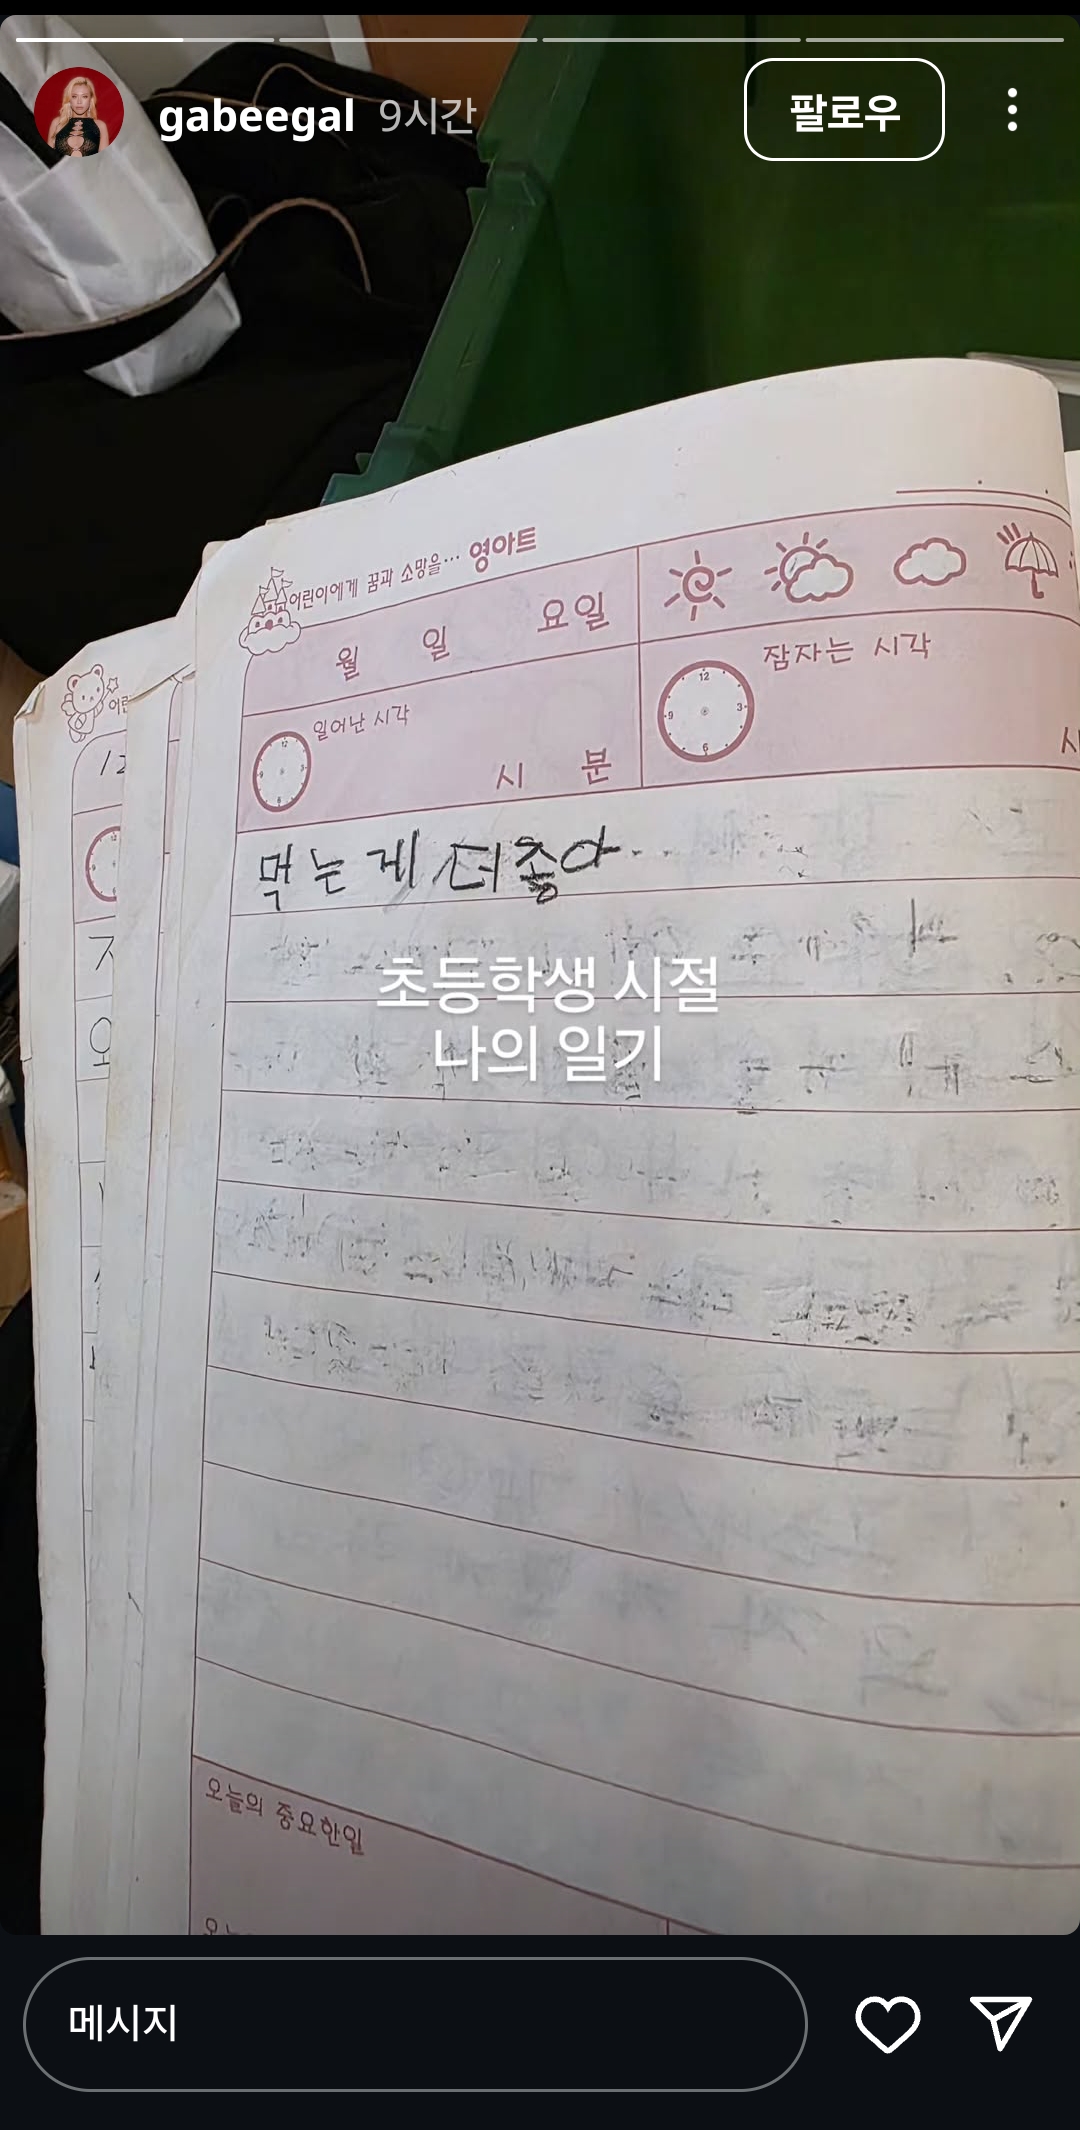 gabeegal 9시간 팔로우
어린이에게 꿈과 소망을… 영아트
월 일 요일
일어난 시각
시 분
잠자는 시각
12
3
6
9
먹는 게 더 좋아...
초등학생 시절
나의 일기
오늘의 중요한일
메시지